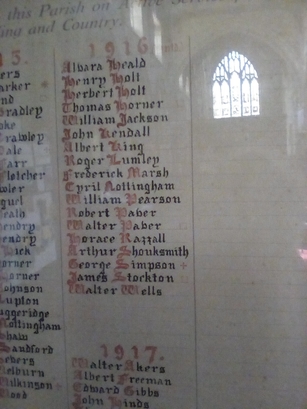 this Parish on
ing and Country.
1916
Alvara Heald
Henry Holt
Herbert Holt
Thomas Horner
William Jackson
John Kendall
Albert King
Roger Lumley
Frederick Marsh
Cyril Nottingham
William Pearson
Robert Raber
Walter Raber
Horace Razzall
Arthur Shouksmith
George Simpson +
James Stockton +
Walter Wells
1917.
Walter Akers
Albert Freeman
Edward Gibbs
John Hinds
5.
ers
arker
nd
radley
oke
rawley
ale
arr
letcher
wler
guel
eath
endry
endry
ick
orner
orner
ohnson
upton
uggeridge
ottingham
haw
andford
ebers
elburn
ilkinson +
ood